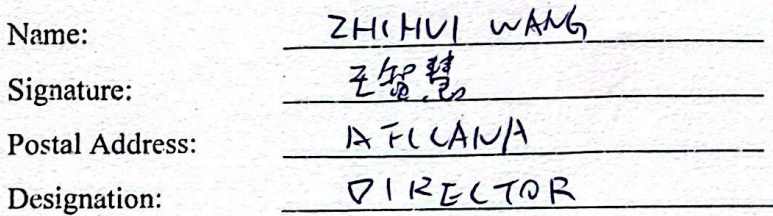 Name: ZHIHUI WANG
Signature: 王智慧
Postal Address: AFICANA
Designation: DIRECTOR